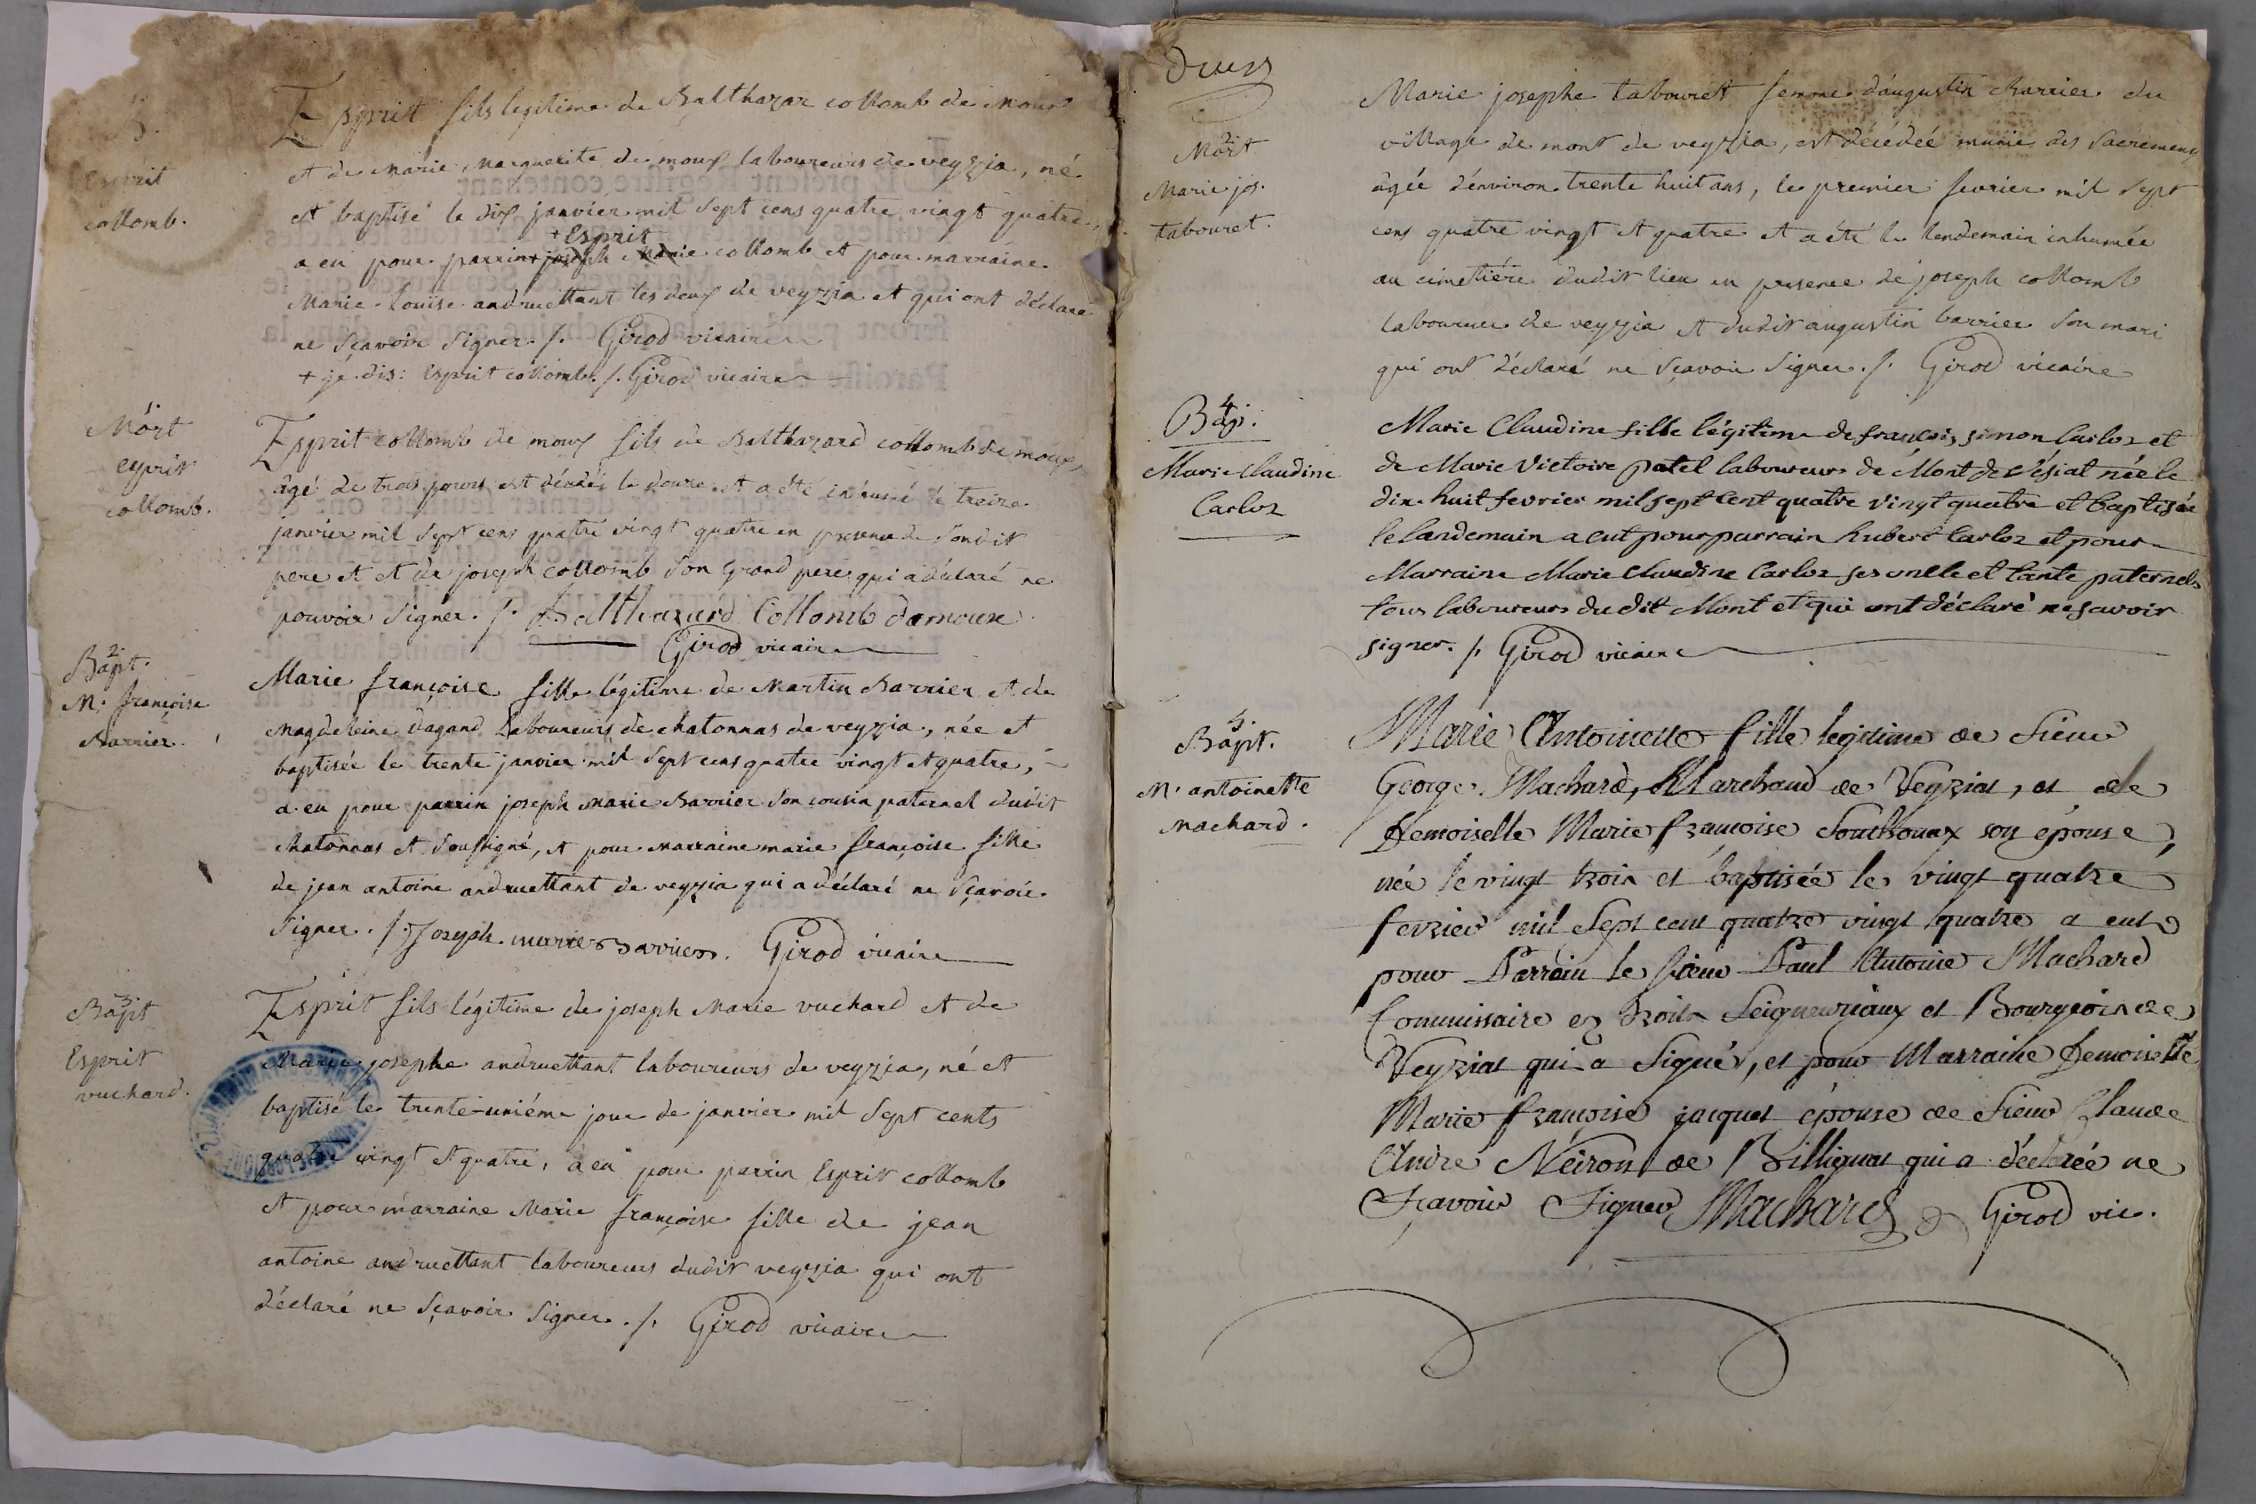 B.
Esprit
collomb.
Esprit fils legitime de Balthazar collomb de moux
et de marie marguerite de moux laboureurs de veyzia, né
et baptisé le dix janvier mil sept cens quatre vingt quatre,
+ Esprit
a eu pour parrin + joseph marie collomb et pour marraine
marie louise andruettant les deux de veyzia et qui ont déclaré
ne sçavoir signer ./. Girod vicaire
+ je dis: Esprit collomb ./. Girod vicaire
1
Mort
esprit
collomb.
Esprit collomb de moux fils de Balthazard collomb de moux,
âgé de trois jours est décédé le douze et a été inhumé le treize
janvier mil sept cens quatre vingt quatre en presence de sondit
pere et et de joseph collomb son grand pere qui a déclaré ne
pouvoir signer ./. Balthazard Collomb damoux
Girod vicaire
2
Bapt.
M. françoise
Barrier.
Marie françoise fille légitime de Martin Barrier et de
magdeleine dagand Laboureurs de chatonnas de veyzia, née et
baptisée le trente janvier mil sept cens quatre vingt et quatre,
a eu pour parrin joseph marie Barrier son cousin paternel dudit
chatonnas et soussigné, et pour marraine marie françoise fille
de jean antoine andruettant de veyzia qui a déclaré ne sçavoir
signer ./. Joseph marie Barrier. Girod vicaire
3
Bapt
Esprit
vuchard.
Esprit fils légitime de joseph Marie vuchard et de
Marie josephe andruettant laboureurs de veyzia, né et
baptisé le trente-uniéme jour de janvier mil sept cents
quatre vingt et quatre, a eu pour parrin Esprit collomb
et pour marraine Marie françoise fille de jean
antoine andruettant laboureurs dudit veyzia qui ont
déclaré ne sçavoir signer ./. Girod vicaire
deux
2
Mort
Marie jos.
tabouret.
Marie josephe tabouret femme d'augustin Barrier du
village de mont de veyzia, est décédée munie des sacremens
âgée d'environ trente huit ans, le premier fevrier mil sept
cens quatre vingt et quatre et a été le lendemain inhumée
au cimetiére dudit lieu en presence de joseph collomb
laboureur de veyzia et dudit augustin barrier son mari
qui ont déclaré ne sçavoir signer ./. Girod vicaire
4
Bap.
Marie Claudine
Carloz
Marie Claudine fille légitime de françois simon Carloz et
de Marie Victoire patel laboureurs de Mont de Vésiat née le
dix-huit fevrier mil sept cent quatre vingt quatre et baptisée
le landemain a eut pour parrain hubert Carloz et pour
Marraine Marie Claudine Carloz ses onele et tante paternels
tous laboureurs du dit Mont et qui ont déclaré ne savoir
signer. /. Girod vicaire
5
Bapt.
M. antoinette
machard.
Marie Antoinette fille legitime de Sieur
George Machard, Marchand de Veyziat, et de
Demoiselle Marie françoise Southonax son épouse,
née le vingt trois et baptisée le vingt quatre
fevrier mil sept cent quatre vingt quatre a eut
pour Parrain le sieur Paul Antoine Machard
Commissaire es Droits Seigneuriaux et Bourgeois de
Veyziat qui a Signé, et pour Marraine Demoiselle
Marie françoise jacquet épouse de Sieur Claude
André Néiron de Billignat qui a déclarée ne
Sçavoir Signer Machard Girod vic.